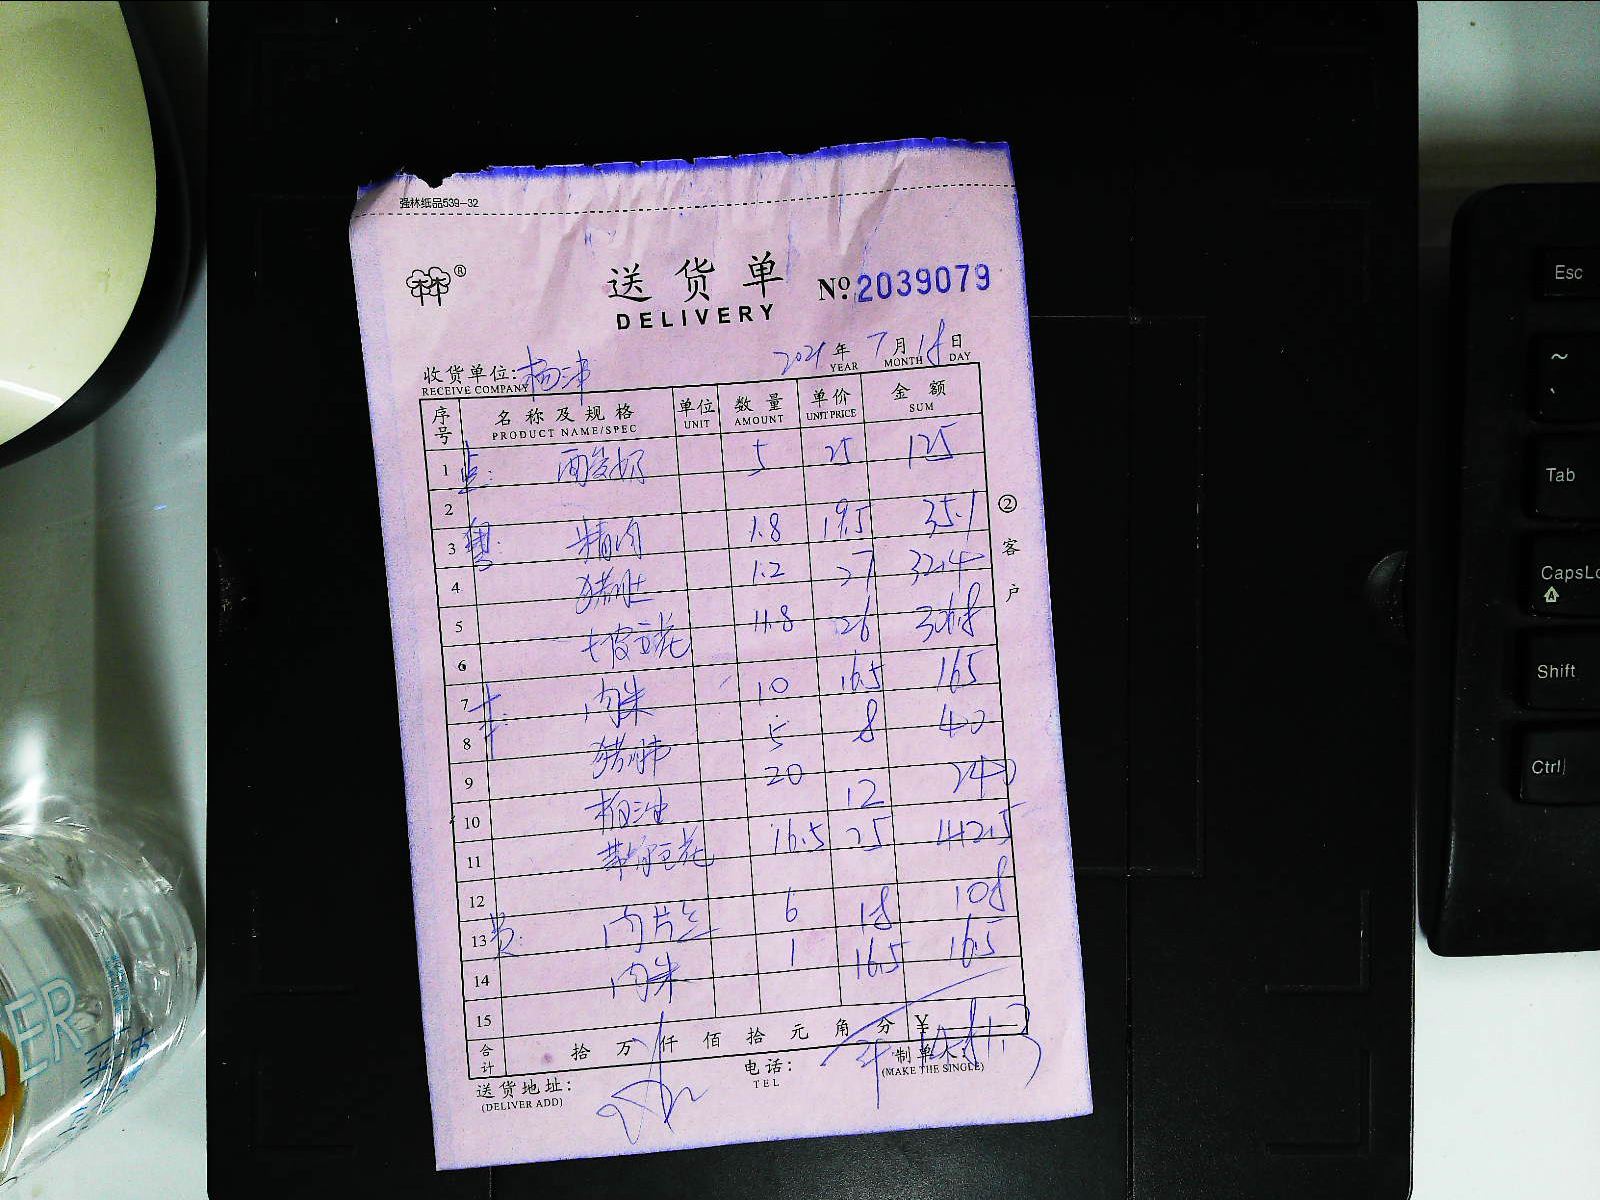 强林纸品539-32
®
送货单
№ 2039079
DELIVERY
2021年 7月 18日
YEAR MONTH DAY
收货单位: 杨沛
RECEIVE COMPANY
序号 名称及规格 单位 数量 单价 金额
PRODUCT NAME/SPEC UNIT AMOUNT UNIT PRICE SUM
1 酸奶 5 25 125
2
3 精肉 1.8 19.5 35.1
4 猪肚 1.2 27 32.40
5 五花 11.8 26 306.8
6
7 肉朱 10 16.5 165
8 猪肺 5 8 40
9 20 12 240
10 板油
11 五花 16.5 25 412.5
12
13 肉片 6 18 108
14 肉朱 1 16.5 16.5
15
合计 拾 万 仟 佰 拾 元 角 分 ¥ 1481.3
送货地址: 电话: 制单人:
(DELIVER ADD) TEL (MAKE THE SINGLE)
② 客户
Esc
~
Tab
CapsLo
Shift
Ctrl
ER